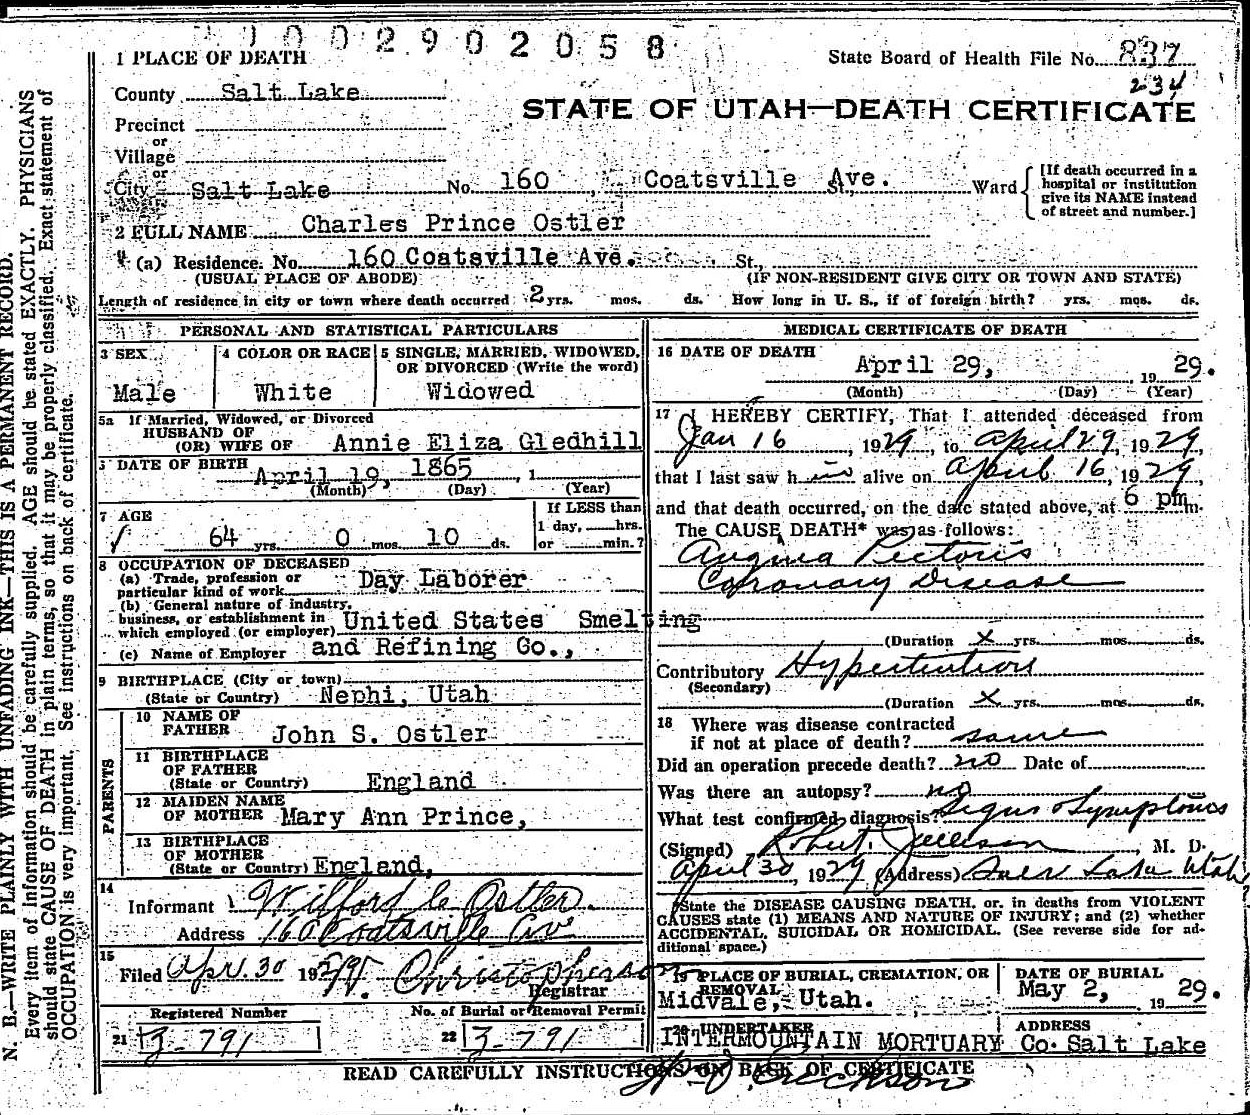 0002902058
1 PLACE OF DEATH
State Board of Health File No. 837
234
County Salt Lake
STATE OF UTAH—DEATH CERTIFICATE
Precinct
or
Village
or
City Salt Lake No. 160 Coatsville Ave. Ward
[If death occurred in a hospital or institution give its NAME instead of street and number.]
2 FULL NAME Charles Prince Ostler
(a) Residence. No. 160 Coatsville Ave. St.,
(USUAL PLACE OF ABODE) (IF NON-RESIDENT GIVE CITY OR TOWN AND STATE)
Length of residence in city or town where death occurred 2 yrs. mos. ds. How long in U. S., if of foreign birth? yrs. mos. ds.
PERSONAL AND STATISTICAL PARTICULARS
3 SEX
Male
4 COLOR OR RACE
White
5 SINGLE, MARRIED, WIDOWED,
OR DIVORCED (Write the word)
Widowed
5a If Married, Widowed, or Divorced
HUSBAND OF
(OR) WIFE OF Annie Eliza Gledhill
DATE OF BIRTH April 19, 1865, 1
(Month) (Day) (Year)
7 AGE
64 yrs. 0 mos. 10 ds.
If LESS than
1 day, hrs.
or min.?
8 OCCUPATION OF DECEASED
(a) Trade, profession or
particular kind of work Day Laborer
(b) General nature of industry,
business, or establishment in
which employed (or employer) United States Smelting
(c) Name of Employer and Refining Co.,
9 BIRTHPLACE (City or town)
(State or Country) Nephi, Utah
PARENTS
10 NAME OF
FATHER John S. Ostler
11 BIRTHPLACE
OF FATHER
(State or Country) England
12 MAIDEN NAME
OF MOTHER Mary Ann Prince,
13 BIRTHPLACE
OF MOTHER
(State or Country) England,
14
Informant Wilford C Ostler.
Address 160 Coatsville Av
15
Filed Apr. 30 1929 W. Christopherson
Registrar
Registered Number No. of Burial or Removal Permit
21 3-791 22 3-791
MEDICAL CERTIFICATE OF DEATH
16 DATE OF DEATH
April 29, 1929.
(Month) (Day) (Year)
17 I HEREBY CERTIFY, That I attended deceased from
Jan 16, 1929, to April 29, 1929,
that I last saw him alive on April 16, 1929,
and that death occurred, on the date stated above, at 6 pm.
The CAUSE DEATH* was as follows:
Angina Pectoris
Coronary Disease
(Duration x yrs. mos. ds.
Contributory Hypertention
(Secondary)
(Duration x yrs. mos. ds.
18 Where was disease contracted
if not at place of death? same
Did an operation precede death? no Date of
Was there an autopsy? no
What test confirmed diagnosis? Signs & Symptoms
(Signed) Robert, M. D.
April 30, 1929 (Address) Salt Lake Utah
*State the DISEASE CAUSING DEATH, or, in deaths from VIOLENT
CAUSES state (1) MEANS AND NATURE OF INJURY; and (2) whether
ACCIDENTAL, SUICIDAL OR HOMICIDAL. (See reverse side for ad-
ditional space.)
19 PLACE OF BURIAL, CREMATION, OR
REMOVAL
Midvale, Utah.
DATE OF BURIAL
May 2, 1929.
20 UNDERTAKER
INTERMOUNTAIN MORTUARY Co. Salt Lake
ADDRESS
READ CAREFULLY INSTRUCTIONS ON BACK OF CERTIFICATE
Erickson
N. B.—WRITE PLAINLY WITH UNFADING INK—THIS IS A PERMANENT RECORD.
Every item of information should be carefully supplied. AGE should be stated EXACTLY. PHYSICIANS
should state CAUSE OF DEATH in plain terms, so that it may be properly classified. Exact statement of
OCCUPATION is very important. See instructions on back of certificate.